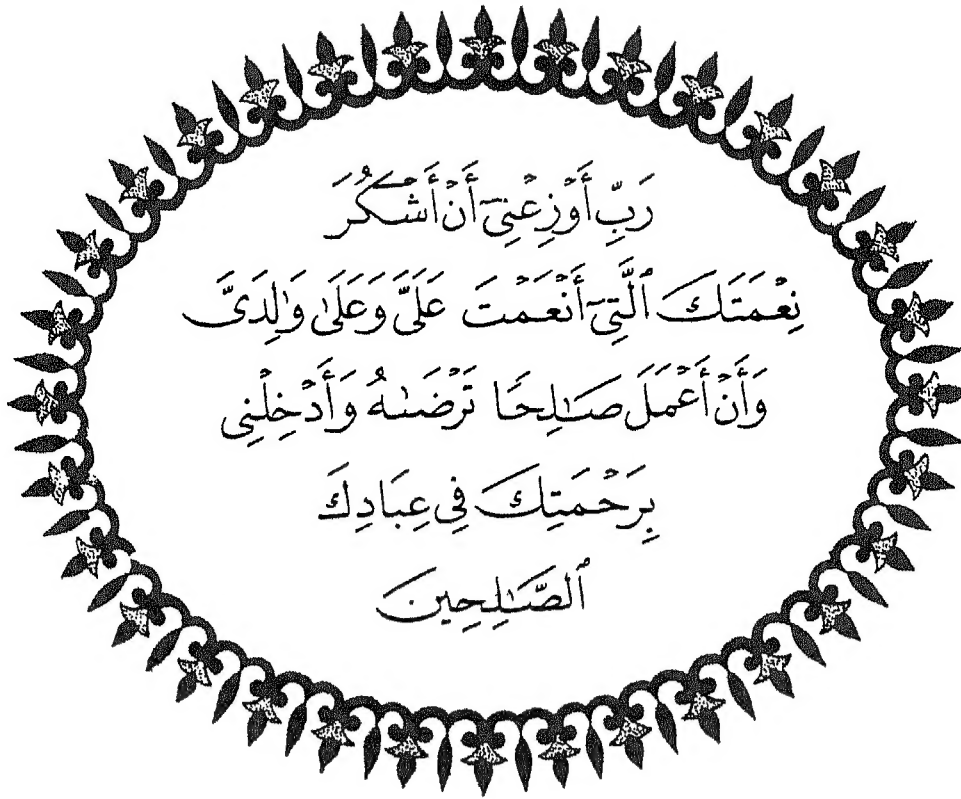 رَبِّ أَوْزِعْنِىٓ أَنْ أَشْكُرَ
نِعْمَتَكَ ٱلَّتِىٓ أَنْعَمْتَ عَلَىَّ وَعَلَىٰ وَٰلِدَىَّ
وَأَنْ أَعْمَلَ صَـٰلِحًا تَرْضَىٰهُ وَأَدْخِلْنِى
بِرَحْمَتِكَ فِى عِبَادِكَ
ٱلصَّـٰلِحِينَ